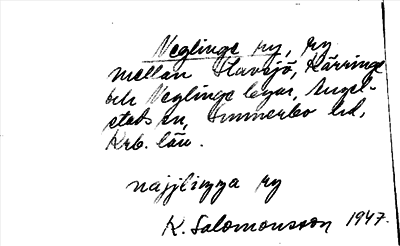 Neglinge ry, ry
mellan Stavsjö, Kärringe
och Neglinge byar, Angel-
stads sn, Sunnerbo hd,
Krb. län.
najjlingga ry
K. Salomonsson 1947.